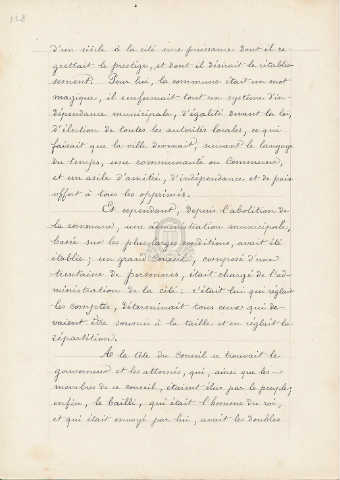 128
d'un siècle à la cité une puissance dont il re-
grettait le prestige, et dont il désirait le rétablis-
sement. Pour lui, la commune était un mot
magique, il renfermait tout un système d'in-
dépendance municipale, d'égalité devant la loi,
d'élection de toutes les autorités locales, ce qui
faisait que la ville devenait, suivant le langage
du temps, une communauté ou Commune,
et un asile d'amitié, d'indépendance et de paix
offert à tous les opprimés.
Et cependant, depuis l'abolition de
la commune, une administration municipale,
basée sur les plus larges conditions, avait été
établie; un grand Conseil, composé d'une
trentaine de personnes, était chargé de l'ad-
ministration de la cité: c'était lui qui réglait
les comptes, déterminait tous ceux qui de-
vaient être soumis à la taille et en réglait la
répartition.
A la tête du Conseil se trouvait le
gouverneur et les attornés, qui, ainsi que les
membres de ce conseil, étaient élus par le peuple;
enfin, le bailli, qui était l'homme du roi,
et qui était envoyé par lui, avait les doubles